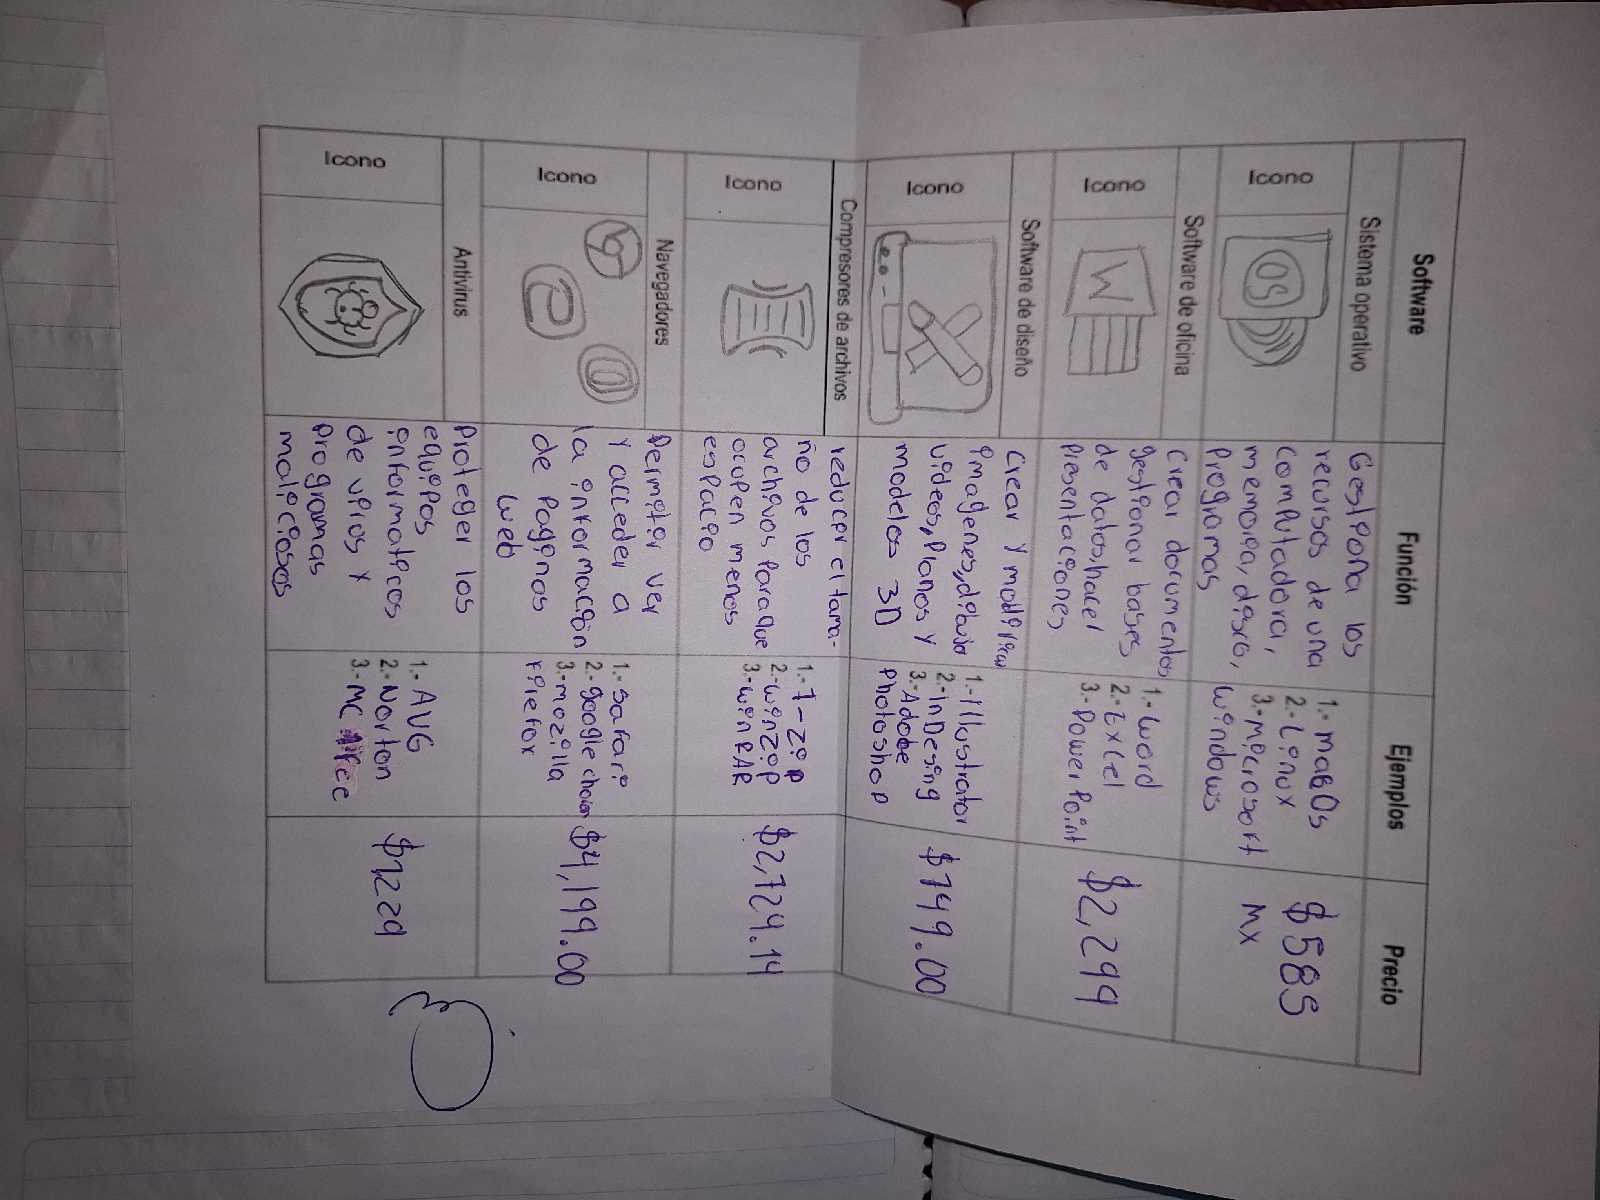 Software Función Ejemplos Precio
Sistema operativo
Icono
OS
Gestiona los
recursos de una
computadora,
memoria, disco,
Programas
1.- macOs
2.- Linux
3.- microsoft
windows
$585
MX
Software de oficina
Icono
W
Crear documentos
gestionar bases
de datos, hacer
Presentaciones
1.- word
2.- Excel
3.- Power Point
$2,299
Software de diseño
Icono
Crear y modificar
imagenes, dibujos
videos, Planos y
modelos 3D
1.- Illustrator
2.- InDesing
3.- Adobe
Photoshop
$749.00
Compresores de archivos
Icono
reducir el tama-
ño de los
archivos Para que
ocupen menos
espacio
1.- 7-zip
2.- winzip
3.- winRAR
$2,724.14
Navegadores
Icono
Permitir ver
y acceder a
la información
de Paginas
web
1.- safari
2.- google
3.- mozilla
firefox
$4,199.00
Antivirus
Icono
Proteger los
equipos
informaticos
de virus y
Programas
maliciosos
1.- AVG
2.- Norton
3.- MC